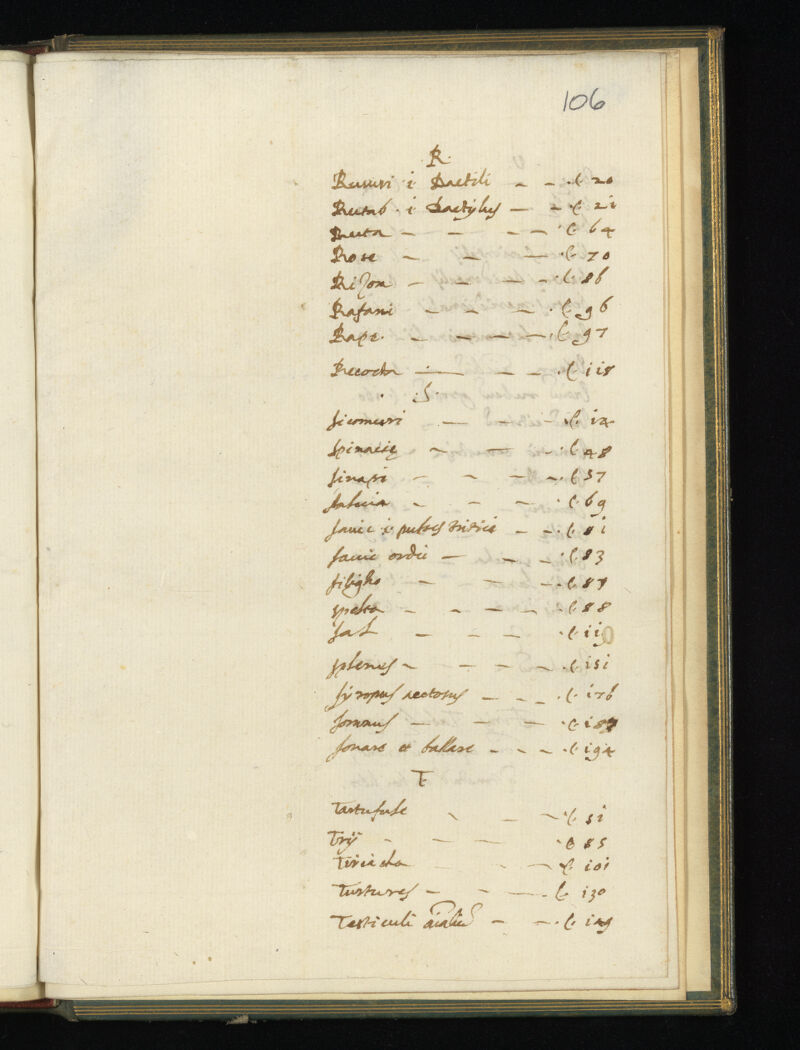 106
.R.
Rusuri i Dactili — — .C 20
Rutab . i Dactylus — — C 21
Ruta — — — — C 64
Rose — — — C 70
Rizon — — — — C 86
Rafani — — — C 96
Rape . — — — C 97
Recocta — — — C 118
. S .
Sicomuri — — — C 14
Spinacie — — — C 48
Sinapi — — — — C 57
Salvia — — — C 69
Savic i pultes triticis — — C 81
Savic ordie — — — C 83
Siligho — — — C 87
Spelta — — — — C 88
Sal — — — C 119
Splenes — — — — C 151
Syropus acetosus — — — C 176
Somnus — — — C 187
Sonare et ballare — — — C 194
T
Tartufule — — C 51
Trij — — — C 85
Tiriacha — — C 101
Turtures — — — C 130
Testiculi aialiu — — C 149